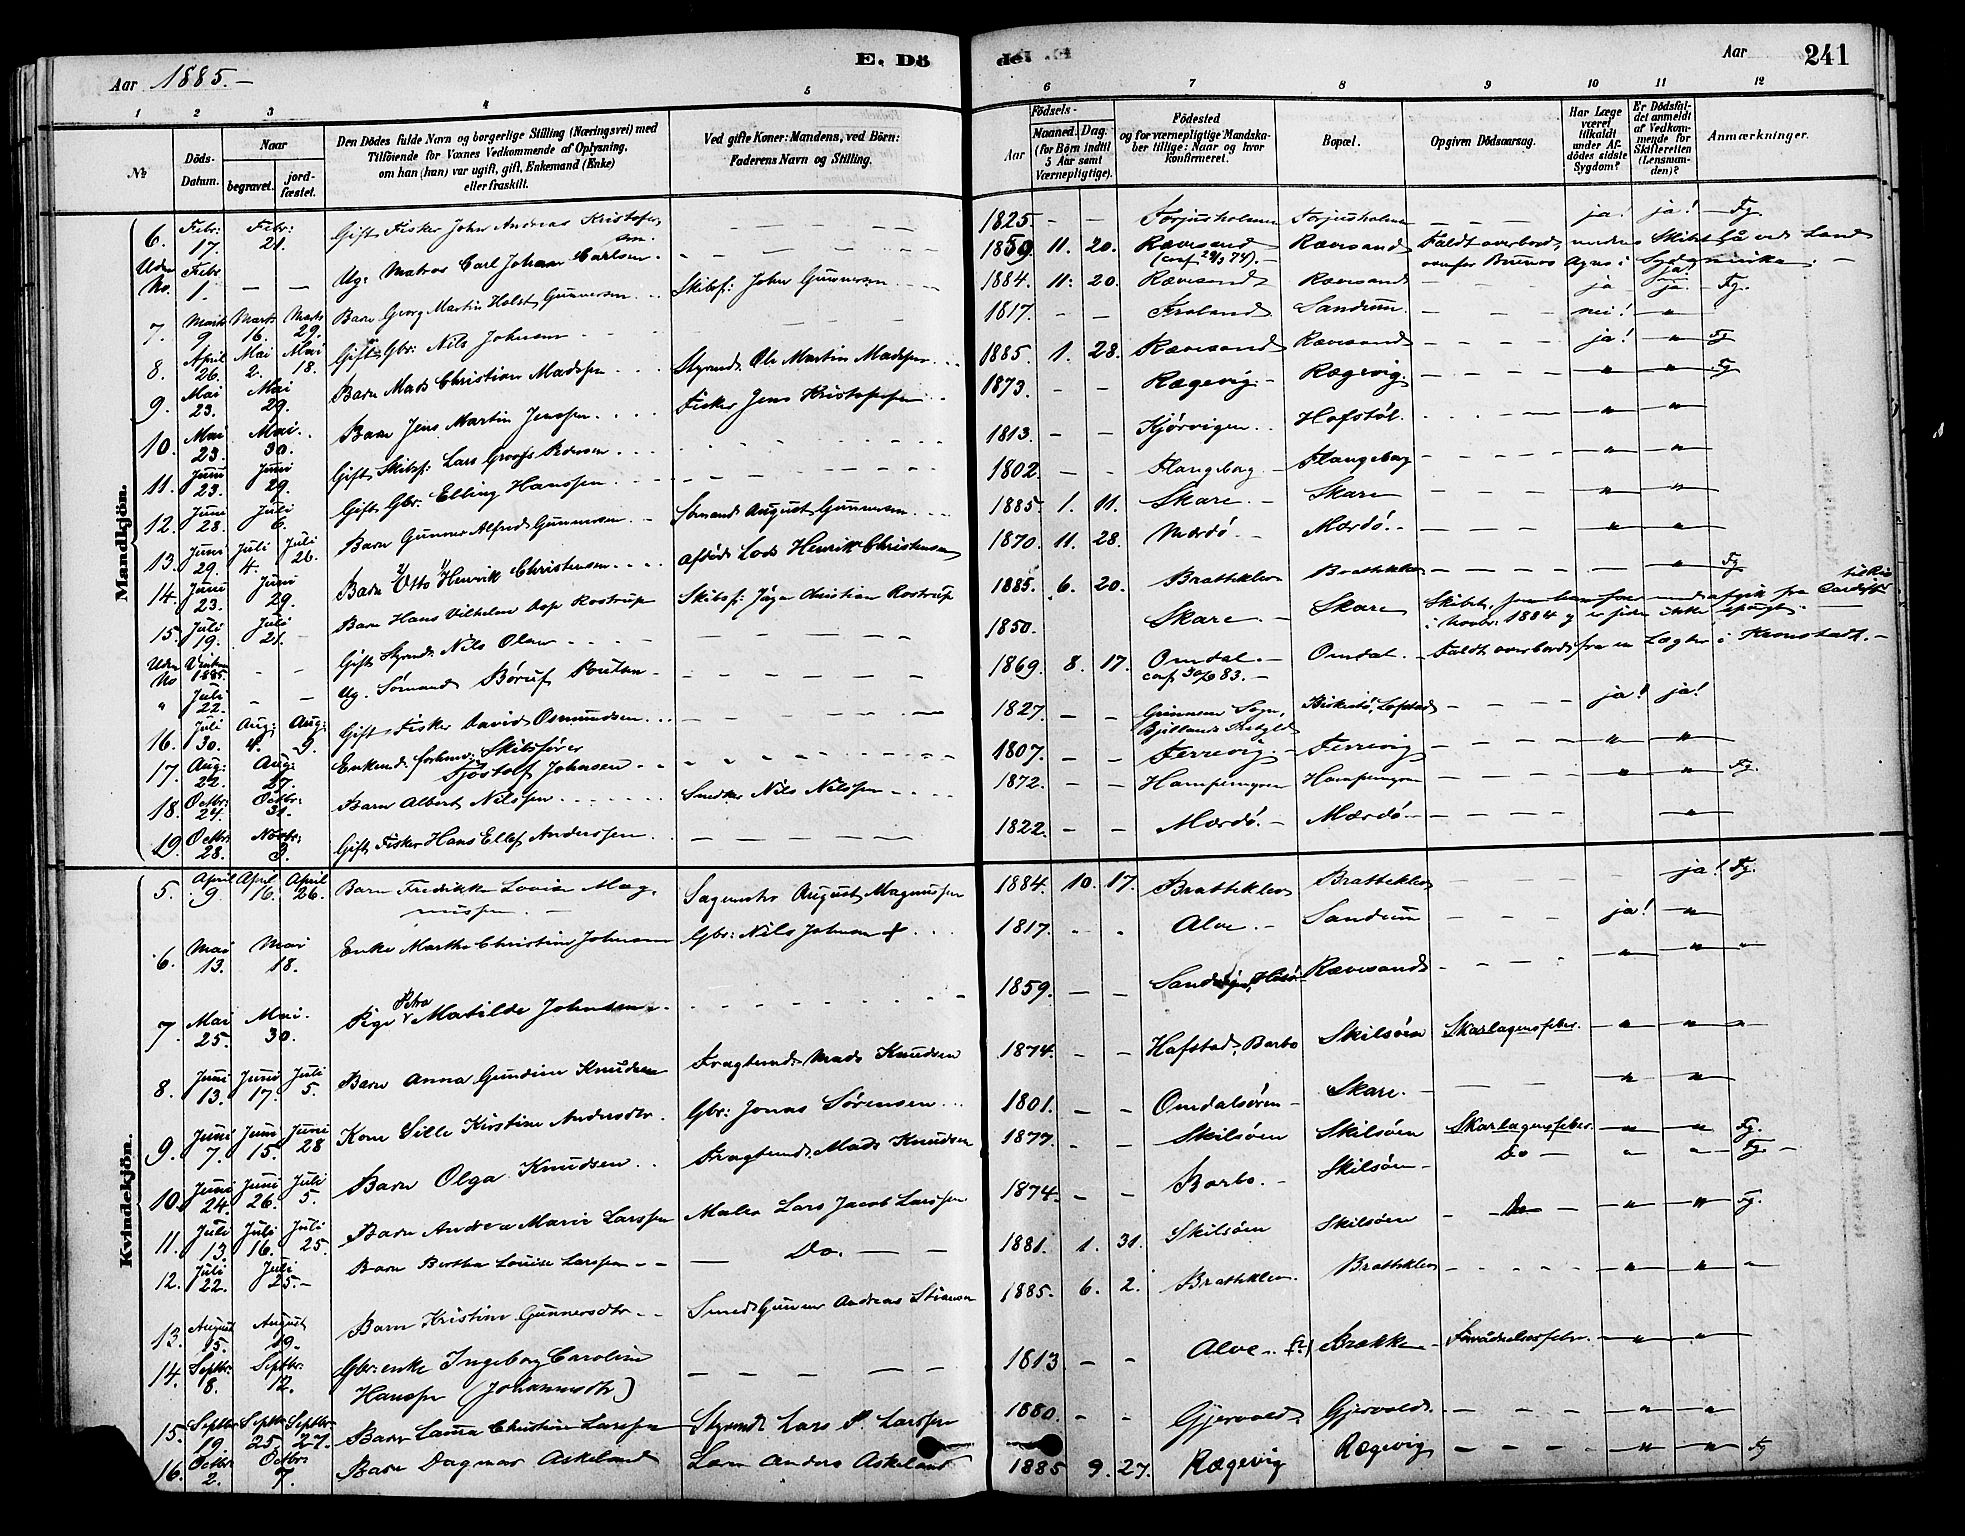 Aar 1885.-
E. Dö
del
Aar
241
1 2 3 4 5 6 7 8 9 10 11 12
№
Döds-Datum.
Naar
begravet.
jord-fæstet.
Den Dödes fulde Navn og borgerlige Stilling (Næringsvei) med
Tilföiende for Voxnes Vedkommende af Oplysning,
om han (hun) var ugift, gift, Enkemand (Enke)
eller fraskilt.
Ved gifte Koner: Mandens, ved Börn:
Faderens Navn og Stilling.
Födsels-
Aar
Maaned. Dag.
(for Börn indtil
5 Aar samt
Værnepligtige).
Födested
og for værnepligtige Mandska-
ber tillige: Naar og hvor
Konfirmeret.
Bopæl.
Opgiven Dödsaarsag.
Har Læge
været
tilkaldt
under Af-
dödes sidste
Sygdom?
Er Dödsfal-
det anmeldt
af Vedkom-
mende for
Skifteretten
(Lensman-
den)?
Anmærkninger.
Mandkjön.
6. Febr: 17. Febr: 21. Gift Fisker John Andreas Kristofersen. 1825. Torjusholmen Torjusholmen ja! ja! Fg.
Uden No. Febr 1. Ug. Matros Carl Johan Carlsen. 1859 11. 20. Rævesand Rævesand Faldt overbord
7. Marts 9 Marts 16. Marts 29. Barn Georg Martin Holst Gunnersen Skibsf: John Gunnersen 1884. 11. 20. Rævesand Rævesand ja ja. Fg.
8. April 26. Mai 2. Mai 18. Gift Gbr: Nils Johnsen 1817. Froland Sandum nei! "
9. Mai 23. Mai 29. Barn Mads Christian Madssen Styrmd: Ole Martin Madssen 1885. 1. 28. Rævesand Rævesand ja! " Fg
10. Mai 23. Mai. 30. Barn Jens Martin Jenssen. Fisker Jens Kristofersen 1873. Rægevig. Rægevig. " " Fg
11. Juni 23. Juni 29. Gift Skibsf: Lars Groofs Pedersen 1813. Kjørvigen Hofstøl. " "
12. Juni 28. Juli 6. Gift Gbr: Elling Hanssen. 1802. Flangeborg Flangeborg " "
13. Juni 29. Juli 4. Juli 26. Barn Gunner Alfred Gunnersen Sømand August Gunnersen 1885. 1. 11. Skare. Skare " "
14. Juni 23. Juni 29. Barn Otto Henrik Christensen afdøde Lods Henrik Christensen 1870. 11. 28. Mærdø. Mærdø. " "
15. Juli 19. Juli 21. Barn Hans Vilhelm Aap Rostrup Skibsf: Jüger Christian Rostrup 1885. 6. 20. Bratteklev Bratteklev " Fg
Uden No Vinteren 1885. Gift Styrmd: Nils Olsen 1850. Skare Skare Skibet, i Novbr: 1884 og er siden ikke spurgt.
" Juli 22. Ug. Sømand Børuf Poulsen 1869 8. 17. Omdal. conf 30/9 83. Omdal. Faldt overbord fra en Lægter i Kronstadt.
16. Juli 30. Aug: 4. Aug: 9. Gift Fisker David Osmundsen. 1827. ja! ja!
17. Aug: 22. Aug: 27. Enkemd: forhenv: Skibsfører Sjøstolf Johnsen 1807. Ferrevig. Ferrevig " "
18. Octbr: 24. Octbr: 31. Barn Albert Nilssen Smed Nils Nilssen 1872. Hampemyren Hampemyren " " Fg.
19. Octbr: 28. Novbr: 3. Gift Fisker Hans Ellef Anderssen. 1822. Mærdø. Mærdø "
Kvindekjön.
5. April 9. April 16. April 26. Barn Fredrikke Lovise Magnussen. Sagmester August Magnussen 1884. 10. 17. Bratteklev Bratteklev ja! Fg.
6. Mai 13. Mai 18. Enke Marthe Christine Johnsen Gbr: Nils Johnsen † 1817. Alve. Sandum ja! "
7. Mai 25. Mai. 30. Pige Petra Matilde Johnsen. 1859. Rævesand " " "
8. Juni 13. Juni 17. Juli 5. Barn Anna Gundine Knudsen Fragtemd: Mads Knudsen 1874. Hafstad, Barbo Skilsøen Skarlagensfeber. " " "
9. Juni 7. Juni 15. Juni 28 Kone Sille Kirstine Andersdtr. Gbr: Jonas Sørensen 1801. Omdalsøren Skare. " "
10. Juni 24. Juni 26. Juli 5. Barn Olga Knudsen Fragtemd: Mads Knudsen 1877. Skilsøen Skilsøen Skarlagensfeber. " " Fg.
11. Juli 13. Juli 16. Juli 25. Barn Andrea Marie Larssen Maler Lars Jacob Larssen 1874. Barbo. Skilsøen Do " " Fg.
12. Juli 22. Juli 25. Barn Bertha Louise Larssen Do. 1881. 1. 31. Skilsøen Skilsøen Do " " Fg.
13. August 15. August 19. Barn Kristine Gunnersdtr. Smed Gunner Andreas Stiansen 1885. 6. 2. Bratteklev. Bratteklev " " "
14. Septbr: 8. Septbr: 12. Gbr: enke Ingeborg Caroline Hanssen (Johannesdtr) 1813 Alve Brække " "
15. Septbr 19. Septbr 25 Septbr 27. Barn Laura Christine Larssen Styrmd: Lars P. Larssen 1880. Gjervold. Gjervold. " "
16. Octbr: 2. Octbr: 7. Barn Dagmar Askeland Lærer Anders Askeland 1885 9. 27. Rægevig Rægevig " " Fg